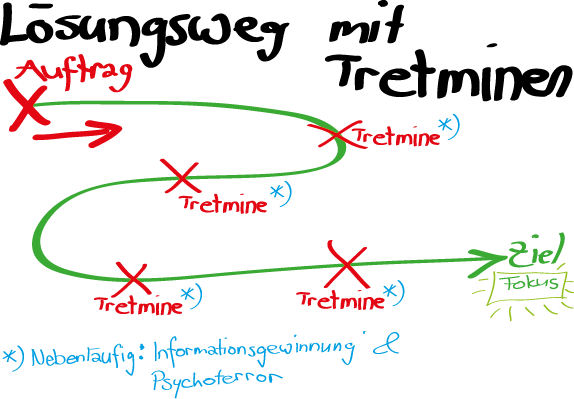 Lösungsweg mit
Tretminen
Auftrag
Tretmine *)
Tretmine *)
Tretmine *)
Tretmine *)
Ziel
Fokus
*) Nebenläufig: Informationsgewinnung &
Psychoterror